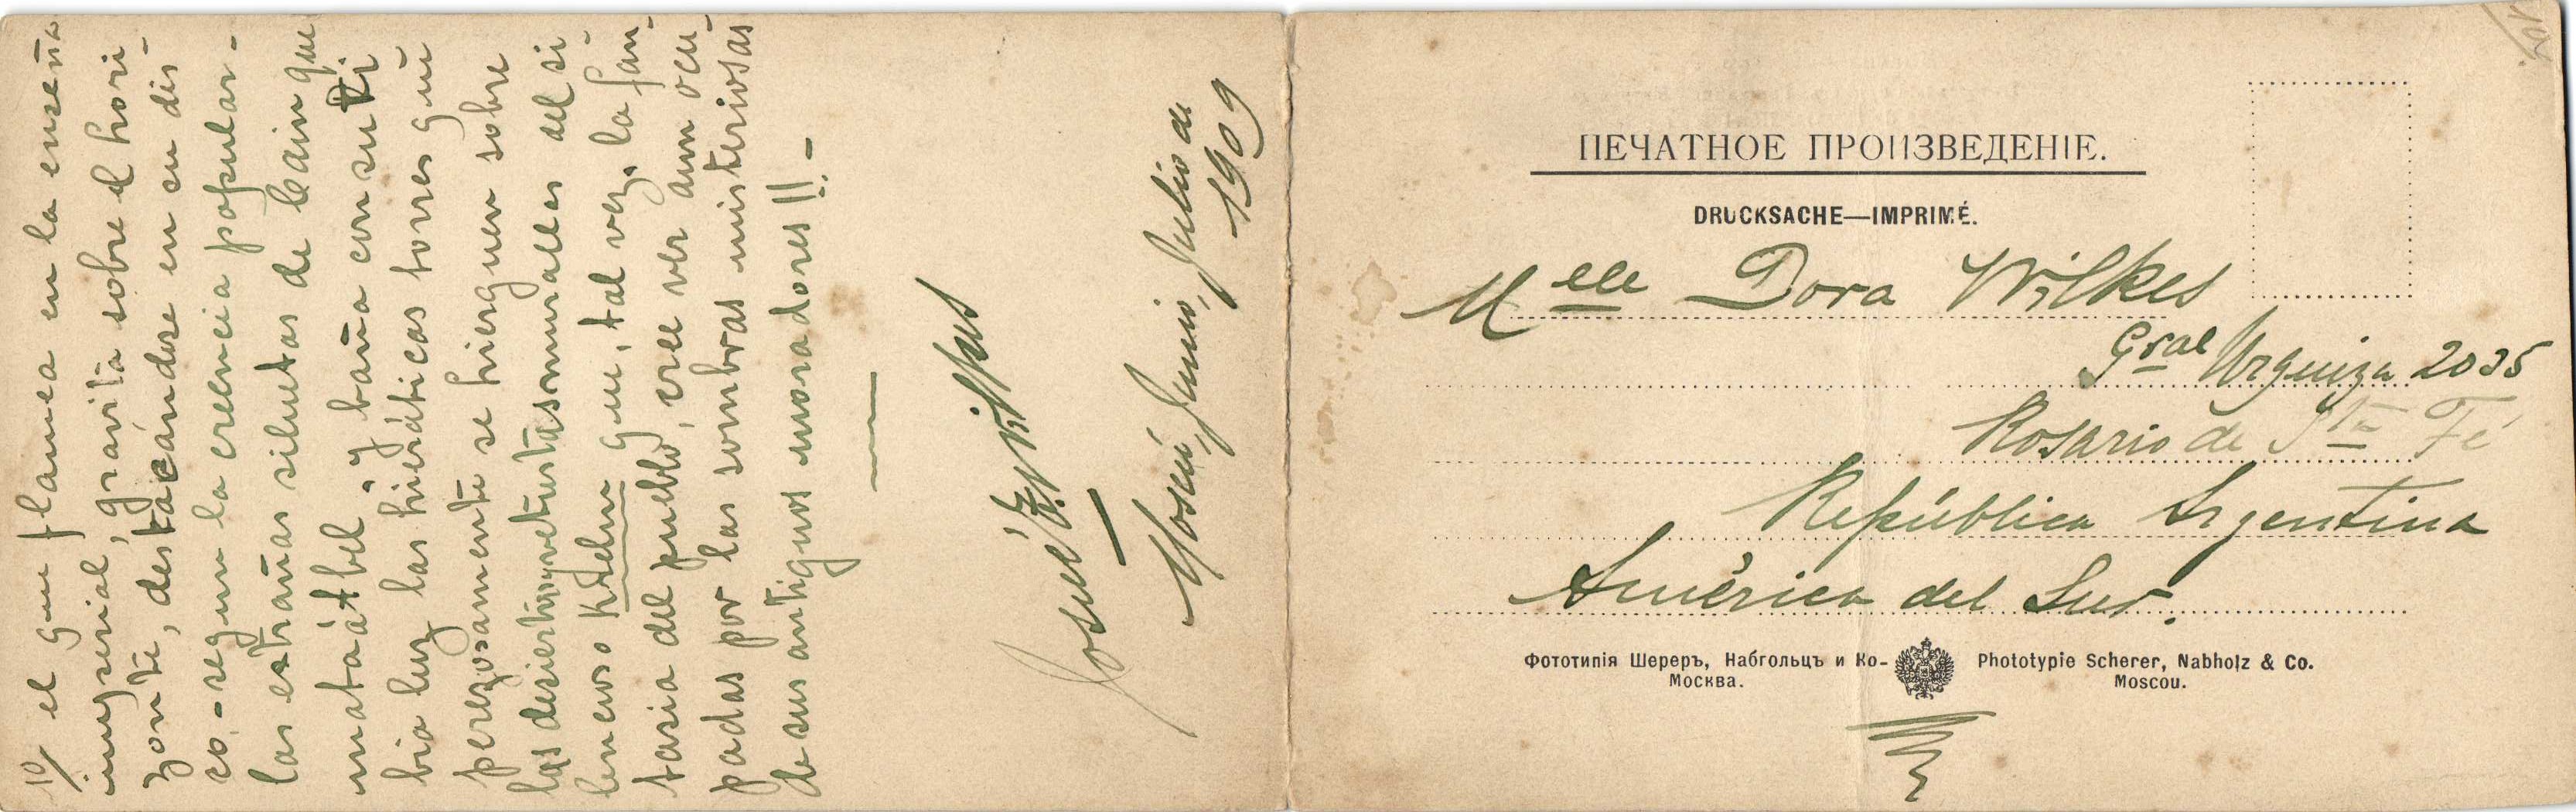 10/ el que flamea en la enseña
imperial, gravita sobre el hori-
zonte, destacándose en su dis-
co, - según la creencia popular -
las extrañas siluetas de Cain que
mata á Abel; y baña con su ti
bia luz las hieráticas torres que
perezosamente se hierguen sobre
las desiertas y vetustas murallas del si
lencioso Krelm que, tal vez, la fan-
tasia del pueblo, cree ver aun ocu-
padas por las sombras misteriosas
de sus antiguos moradores!! -
José
Moscú, Junio, Julio de
1909
ПЕЧАТНОЕ ПРОИЗВЕДЕНІЕ.
DRUCKSACHE—IMPRIMÉ.
Melle Dora Wilkes
Gral Urquiza 2035
Rosario de Sta Fé
República Argentina
América del Sur.
Фототипія Шереръ, Набгольцъ и Ко-
Москва.
Phototypie Scherer, Nabholz & Co.
Moscou.